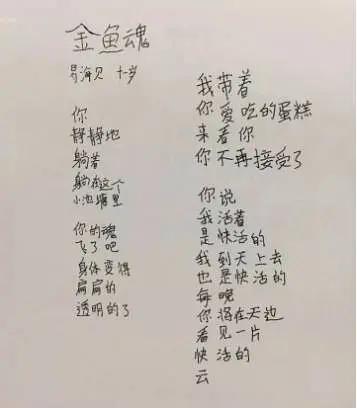 金鱼魂
易海贝 十岁
你
静静地
躺着
躺在这个
小池塘里
你的魂
飞了吧
身体变得
扁扁的
透明的了
我带着
你爱吃的蛋糕
来看你
你不再接受了
你说
我活着
是快活的
我到天上去
也是快活的
每晚
你将在天边
看见一片
快活的
云